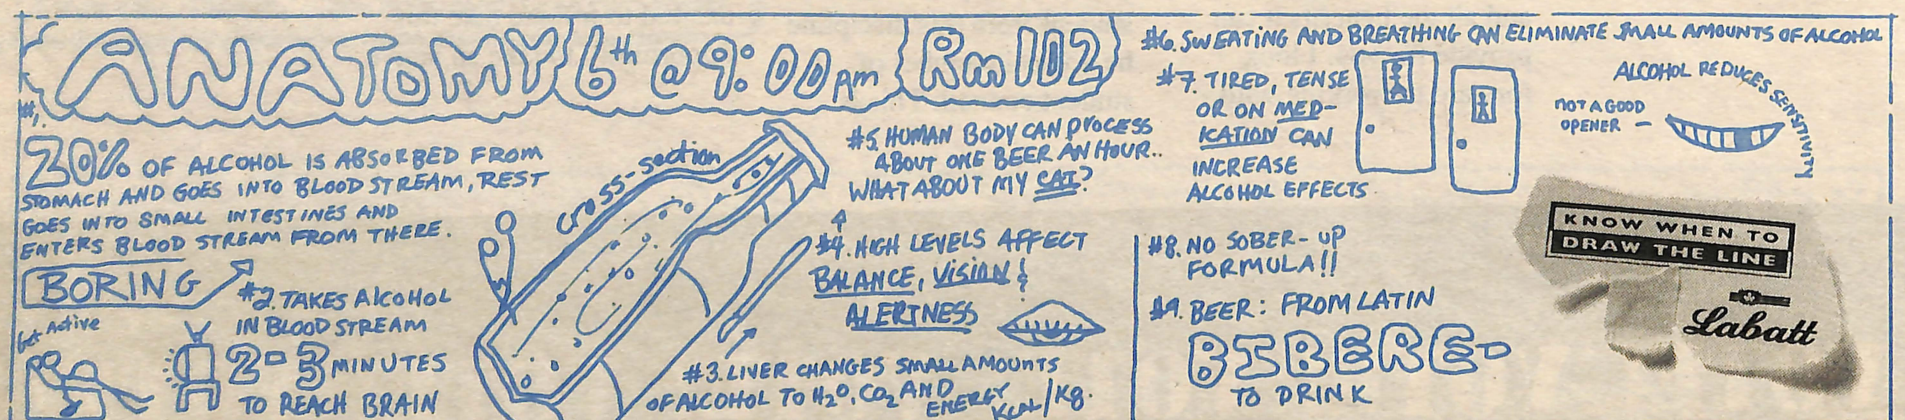 ANATOMY 6th @ 9:00 Am Rm 102
#1.
20% OF ALCOHOL IS ABSORBED FROM
STOMACH AND GOES INTO BLOOD STREAM, REST
GOES INTO SMALL INTESTINES AND
ENTERS BLOOD STREAM FROM THERE.
BORING
Get Active
#2. TAKES ALCOHOL
IN BLOOD STREAM
2-3 MINUTES
TO REACH BRAIN
cross-section
#3. LIVER CHANGES SMALL AMOUNTS
OF ALCOHOL TO H2O, CO2 AND
ENERGY
KCAL/Kg.
#4. HIGH LEVELS AFFECT
BALANCE, VISION &
ALERTNESS
#5. HUMAN BODY CAN PROCESS
ABOUT ONE BEER AN HOUR..
WHAT ABOUT MY CAT?
#6. SWEATING AND BREATHING CAN ELIMINATE SMALL AMOUNTS OF ALCOHOL
#7. TIRED, TENSE
OR ON MED-
ICATION CAN
INCREASE
ALCOHOL EFFECTS
ALCOHOL REDUCES SENSITIVITY
NOT A GOOD
OPENER -
#8. NO SOBER-UP
FORMULA!!
#9. BEER: FROM LATIN
BIBERE-
TO DRINK
KNOW WHEN TO
DRAW THE LINE
Labatt